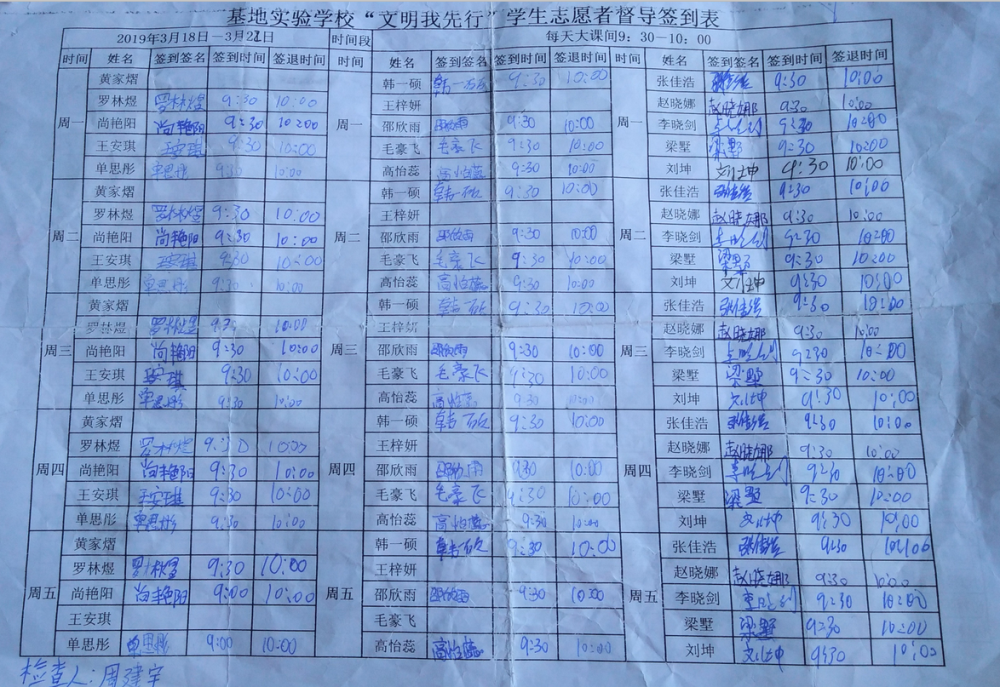 基地实验学校“文明我先行”学生志愿者督导签到表
2019年3月18日—3月22日 时间段 每天大课间9：30—10：00
时间 姓名 签到签名 签到时间 签退时间 时间 姓名 签到签名 签到时间 签退时间 时间 姓名 签到签名 签到时间 签退时间
周一 黄家熠 周一 韩一硕 韩一硕 9:30 10:00 周一 张佳浩 张佳浩 9:30 10:00
罗林煜 罗林煜 9:30 10:00 王梓妍 赵晓娜 赵晓娜 9:30 10:00
尚艳阳 尚艳阳 9:30 10:00 邵欣雨 邵欣雨 9:30 10:00 李晓剑 李晓剑 9:30 10:00
王安琪 王安琪 9:30 10:00 毛豪飞 毛豪飞 9:30 10:00 梁墅 梁墅 9:30 10:00
单思彤 单思彤 9:30 10:00 高怡蕊 高怡蕊 9:30 10:00 刘坤 刘坤 9:30 10:00
周二 黄家熠 周二 韩一硕 韩一硕 9:30 10:00 周二 张佳浩 张佳浩 9:30 10:00
罗林煜 罗林煜 9:30 10:00 王梓妍 赵晓娜 赵晓娜 9:30 10:00
尚艳阳 尚艳阳 9:30 10:00 邵欣雨 邵欣雨 9:30 10:00 李晓剑 李晓剑 9:30 10:00
王安琪 王安琪 9:30 10:00 毛豪飞 毛豪飞 9:30 10:00 梁墅 梁墅 9:30 10:00
单思彤 单思彤 9:30 10:00 高怡蕊 高怡蕊 9:30 10:00 刘坤 刘坤 9:30 10:00
周三 黄家熠 周三 韩一硕 韩一硕 9:30 10:00 周三 张佳浩 张佳浩 9:30 10:00
罗林煜 罗林煜 9:30 10:00 王梓妍 赵晓娜 赵晓娜 9:30 10:00
尚艳阳 尚艳阳 9:30 10:00 邵欣雨 邵欣雨 9:30 10:00 李晓剑 李晓剑 9:30 10:00
王安琪 王安琪 9:30 10:00 毛豪飞 毛豪飞 9:30 10:00 梁墅 梁墅 9:30 10:00
单思彤 单思彤 9:30 10:00 高怡蕊 高怡蕊 9:30 10:00 刘坤 刘坤 9:30 10:00
周四 黄家熠 周四 韩一硕 韩一硕 9:30 10:00 周四 张佳浩 张佳浩 9:30 10:00
罗林煜 罗林煜 9:30 10:00 王梓妍 赵晓娜 赵晓娜 9:30 10:00
尚艳阳 尚艳阳 9:30 10:00 邵欣雨 邵欣雨 9:30 10:00 李晓剑 李晓剑 9:30 10:00
王安琪 王安琪 9:30 10:00 毛豪飞 毛豪飞 9:30 10:00 梁墅 梁墅 9:30 10:00
单思彤 单思彤 9:30 10:00 高怡蕊 高怡蕊 9:30 10:00 刘坤 刘坤 9:30 10:00
周五 黄家熠 周五 韩一硕 韩一硕 9:30 10:00 周五 张佳浩 张佳浩 9:30 10:00
罗林煜 罗林煜 9:30 10:00 王梓妍 赵晓娜 赵晓娜 9:30 10:00
尚艳阳 尚艳阳 9:00 10:00 邵欣雨 邵欣雨 9:30 10:00 李晓剑 李晓剑 9:30 10:00
王安琪 毛豪飞 梁墅 梁墅 9:30 10:00
单思彤 单思彤 9:00 10:00 高怡蕊 高怡蕊 9:30 10:00 刘坤 刘坤 9:30 10:00
检查人：周建宇